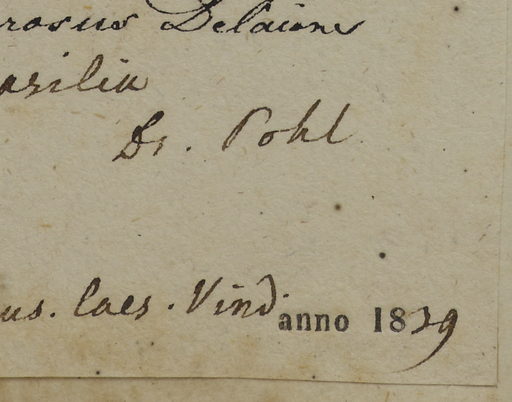 rosus Delaun
asilia
Dr. Pohl
us. Caes. Vind. anno 1839